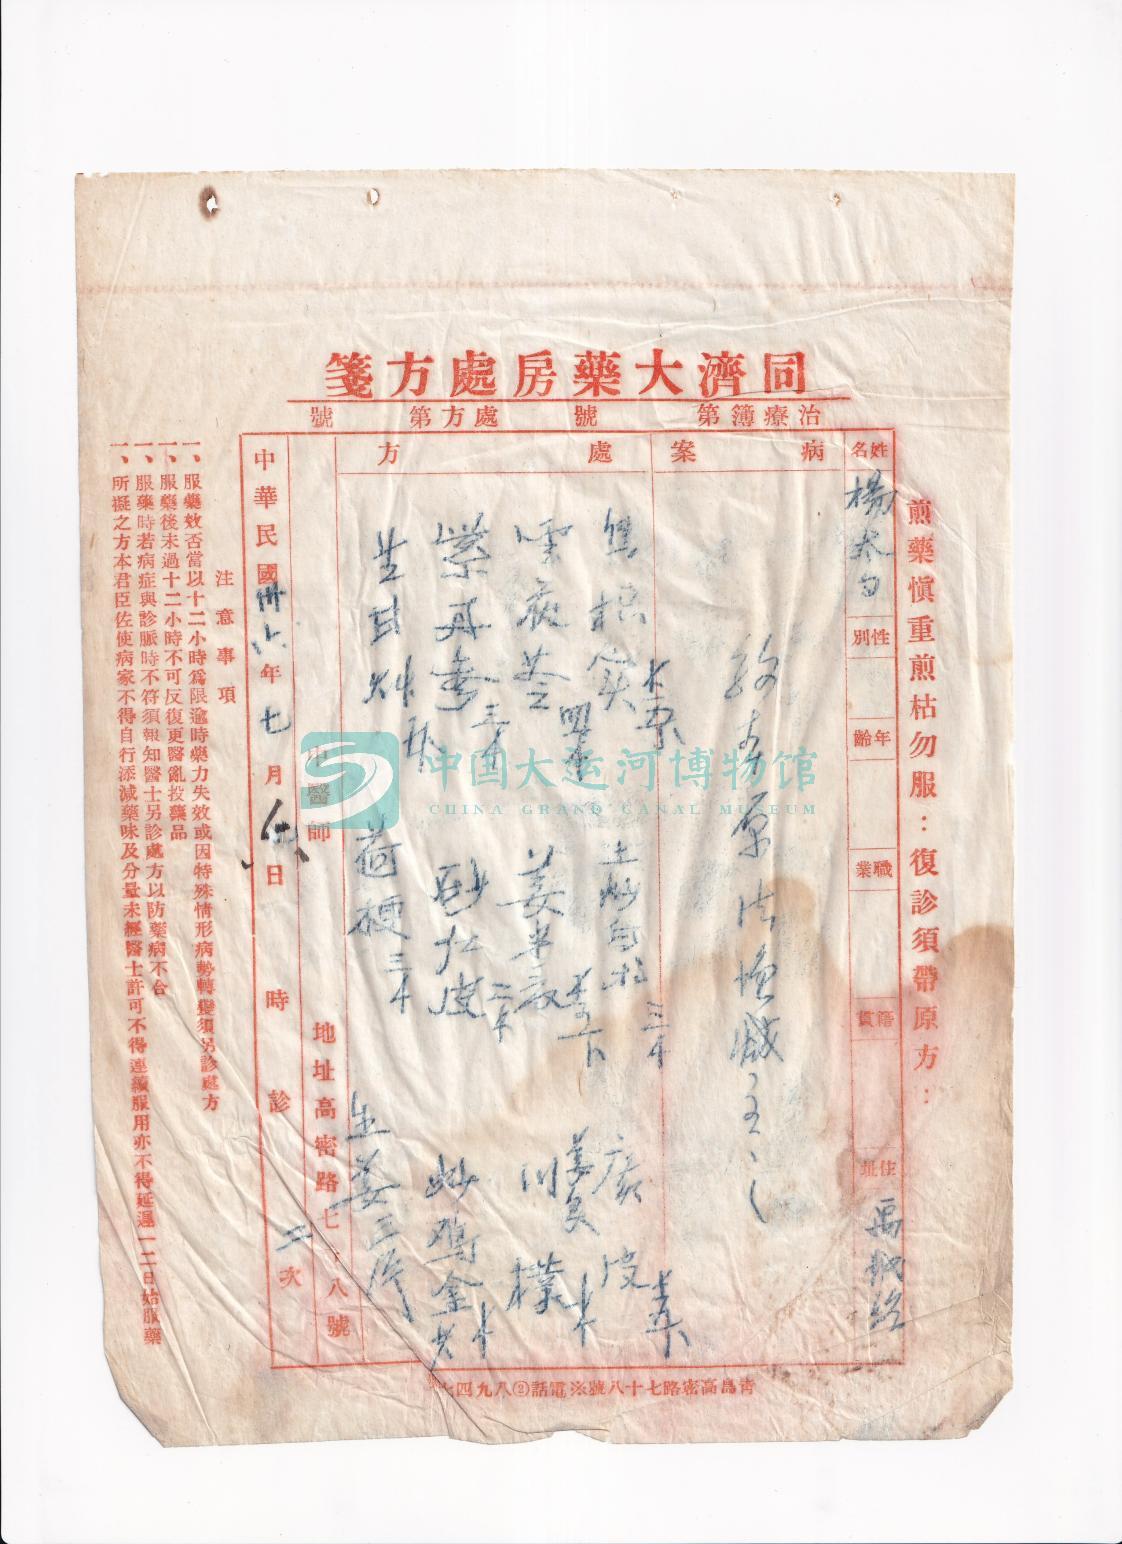 同濟大藥房處方箋
治療簿第　號　處方第　號
煎藥慎重煎枯勿服：復診須帶原方：
姓名 楊太白
性別
年齡
職業
籍貫
住址 禹城路
病案
原法增減主之
處方
焦枳實 土炒白朮 三个 廣皮
雲茯苓 姜半夏 川樸
紫丹參 三个 砂仁皮 二个 炒鬱金
生甘草 荷梗 三个 生姜三片
中醫師
地址高密路七十八號
中華民國卅六年七月 日 時診 二次
注意事項
一、服藥效否當以十二小時爲限逾時藥力失效或因特殊情形病勢轉變須另診處方
一、服藥後未過十二小時不可反復更醫亂投藥品
一、服藥時若病症與診脈時不符須報知醫士另診處方以防藥病不合
一、所擬之方本君臣佐使病家不得自行添減藥味及分量未經醫士許可不得連續服用亦不得延遲一二日始服藥
青島高密路七十八號※電話②八九四七
中国大运河博物馆
CHINA GRAND CANAL MUSEUM